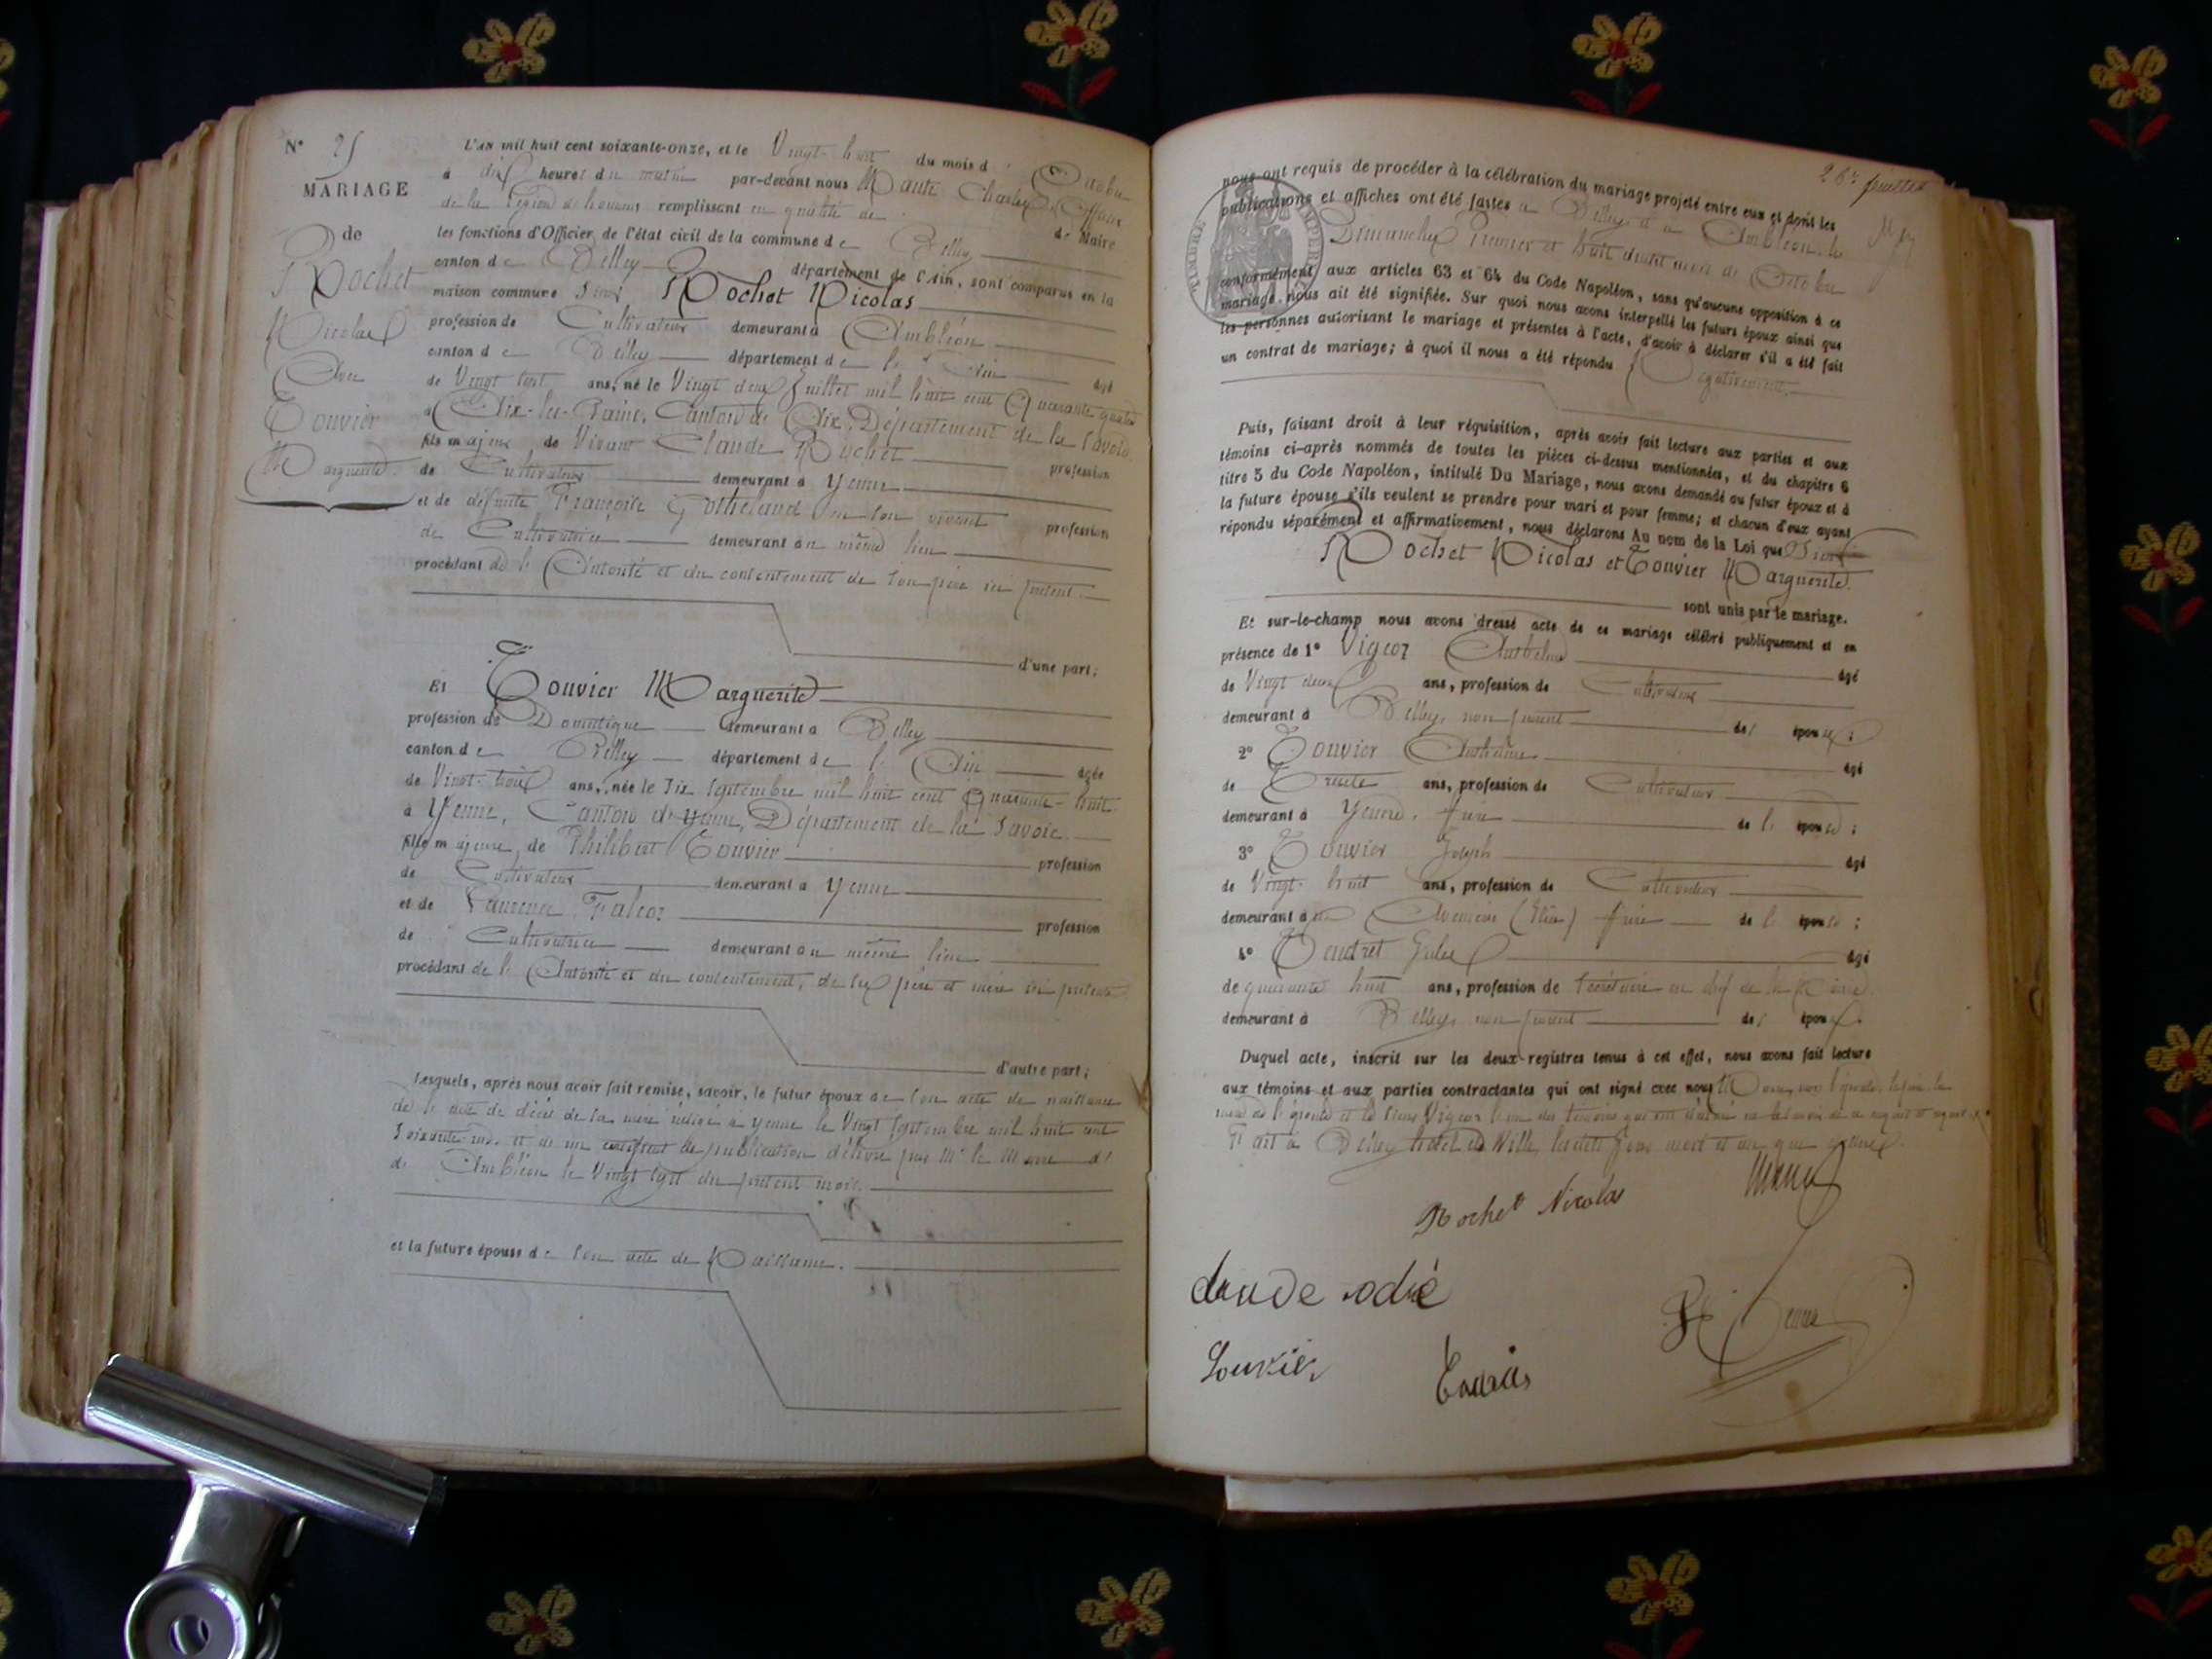 N° 25
MARIAGE
de
Rochet
Nicolas
Avec
Touvier
Marguerite.
L'AN mil huit cent soixante-onze, et le Vingt-huit du mois d'Octobre
à dix heures du matin par-devant nous Charles Officier
de la Légion d'honneur remplissant en qualité de de Maire
les fonctions d'Officier de l'état civil de la commune de Belley
canton de Belley département de l'Ain, sont comparus en la
maison commune Sieur Rochet Nicolas
profession de Cultivateur demeurant à Ambléon
canton de Belley département de l'Ain âgé
de Vingt sept ans, né le Vingt deux Juillet mil huit cent Quarante quatre
à Aix-les-Bains, Canton de Aix, Département de la Savoie
fils majeur de Vivant Claude Rochet profession
de Cultivateur demeurant à Yenne
et de défunte Françoise en son vivant profession
de Cultivatrice demeurant au même lieu
procédant de l'Autorité et du consentement de son père ici présent.
d'une part;
Et Touvier Marguerite
profession de Domestique demeurant à Belley
canton de Belley département de l'Ain âgée
de Vingt-trois ans, née le Six Septembre mil huit cent Quarante-huit
à Yenne, Canton de Yenne, Département de la Savoie.
fille majeure de Philibert Touvier profession
de Cultivateur demeurant à Yenne
et de Laurence Falcoz profession
de Cultivatrice demeurant au même lieu
procédant de l'Autorité et du consentement, de ses père et mère ici présents
d'autre part;
Lesquels, après nous avoir fait remise, savoir, le futur époux de son acte de naissance
de l'acte de décès de sa mère rédigé à Yenne le Vingt Septembre mil huit cent
Soixante et de un certificat de publication délivré par Mr le Maire
de Ambléon le Vingt sept du présent mois.
et la future épouse de son acte de Naissance.
26e feuillet
nous ont requis de procéder à la célébration du mariage projeté entre eux et dont les
publications et affiches ont été faites à Belley et à Ambléon, les
Dimanches Premier et huit du mois de Octobre
conformément aux articles 63 et 64 du Code Napoléon, sans qu'aucune opposition à ce
mariage nous ait été signifiée. Sur quoi nous avons interpellé les futurs époux ainsi que
les personnes autorisant le mariage et présentes à l'acte, d'avoir à déclarer s'il a été fait
un contrat de mariage; à quoi il nous a été répondu Négativement.
TIMBRE IMPÉRIAL
Puis, faisant droit à leur réquisition, après avoir fait lecture aux parties et aux
témoins ci-après nommés de toutes les pièces ci-dessus mentionnées, et du chapitre 6
titre 5 du Code Napoléon, intitulé Du Mariage, nous avons demandé au futur époux et à
la future épouse s'ils veulent se prendre pour mari et pour femme; et chacun d'eux ayant
répondu séparément et affirmativement, nous déclarons Au nom de la Loi que
Rochet Nicolas et Touvier Marguerite.
sont unis par le mariage.
Et sur-le-champ nous avons dressé acte de ce mariage célébré publiquement et en
présence de 1° Vigeoz Anthelme âgé
de Vingt deux ans, profession de Cultivateur
demeurant à Belley, non parent des époux;
2° Touvier Anthelme âgé
de Trente ans, profession de Cultivateur
demeurant à Yenne, frère de l'épouse;
3° Touvier Joseph âgé
de Vingt-huit ans, profession de Cultivateur
demeurant à (Isère) frère de l'épouse;
4° Jules âgé
de quarante huit ans, profession de Secrétaire en chef de la Mairie
demeurant à Belley, non parent des époux.
Duquel acte, inscrit sur les deux registres tenus à cet effet, nous avons fait lecture
aux témoins et aux parties contractantes qui ont signé avec nous
Fait à Belley hôtel de Ville, les dits jour mois et an que
Rochet Nicolas
Touvier